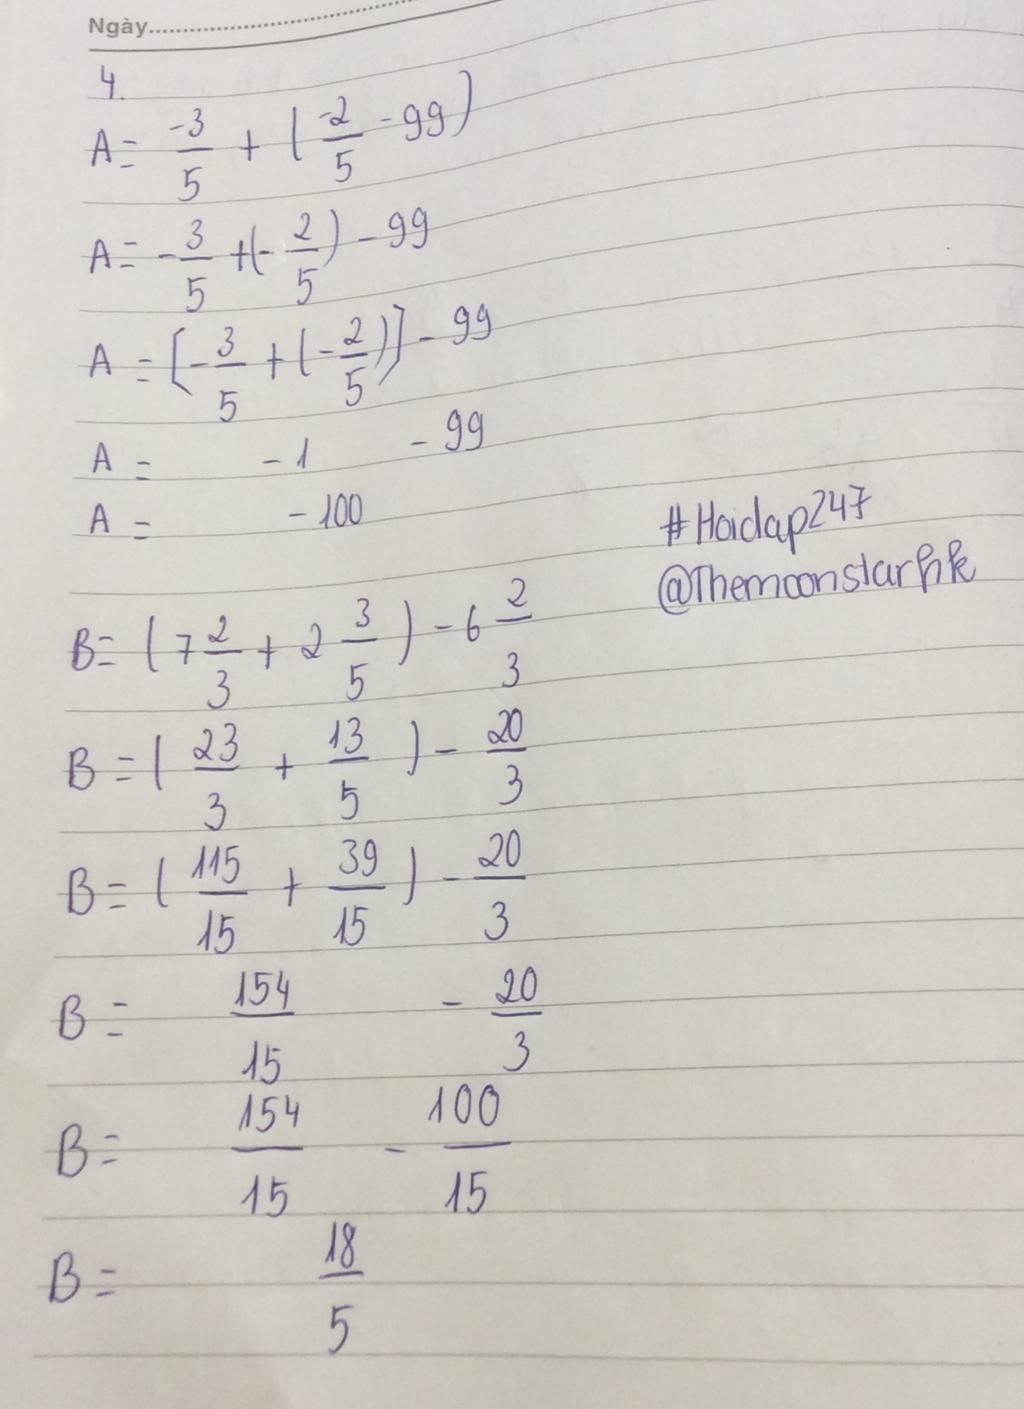 Ngày
4.
A = -3/5 + (-2/5 - 99)
A = -3/5 + (-2/5) - 99
A = [-3/5 + (-2/5)] - 99
A = -1 - 99
A = -100
#Hoidap247
@Themoonstarhk
B = (7 2/3 + 2 3/5) - 6 2/3
B = (23/3 + 13/5) - 20/3
B = (115/15 + 39/15) - 20/3
B = 154/15 - 20/3
B = 154/15 - 100/15
B = 18/5